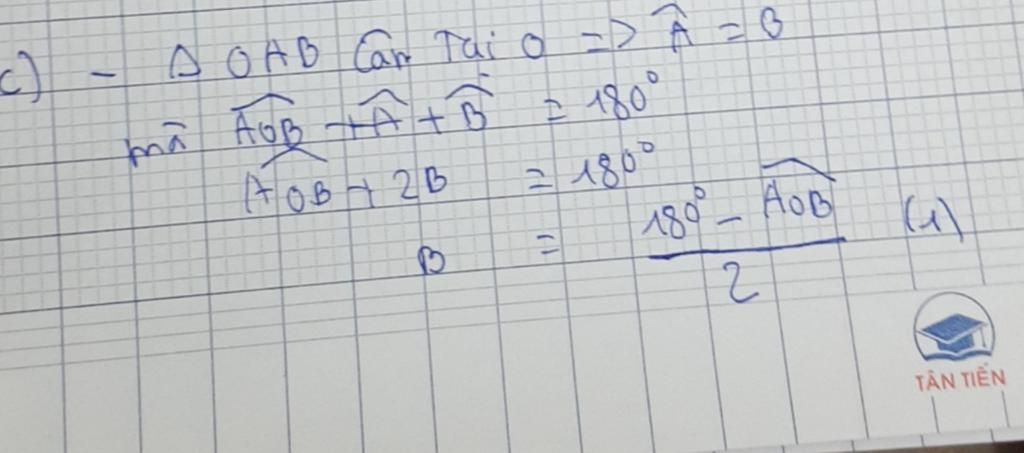 c) - Δ OAB Cân Tại O => Â = B
mà \widehat{AOB} + Â + \widehat{B} = 180°
\widehat{AOB} + 2B = 180°
B = \frac{180° - \widehat{AOB}}{2} (1)
TÂN TIẾN